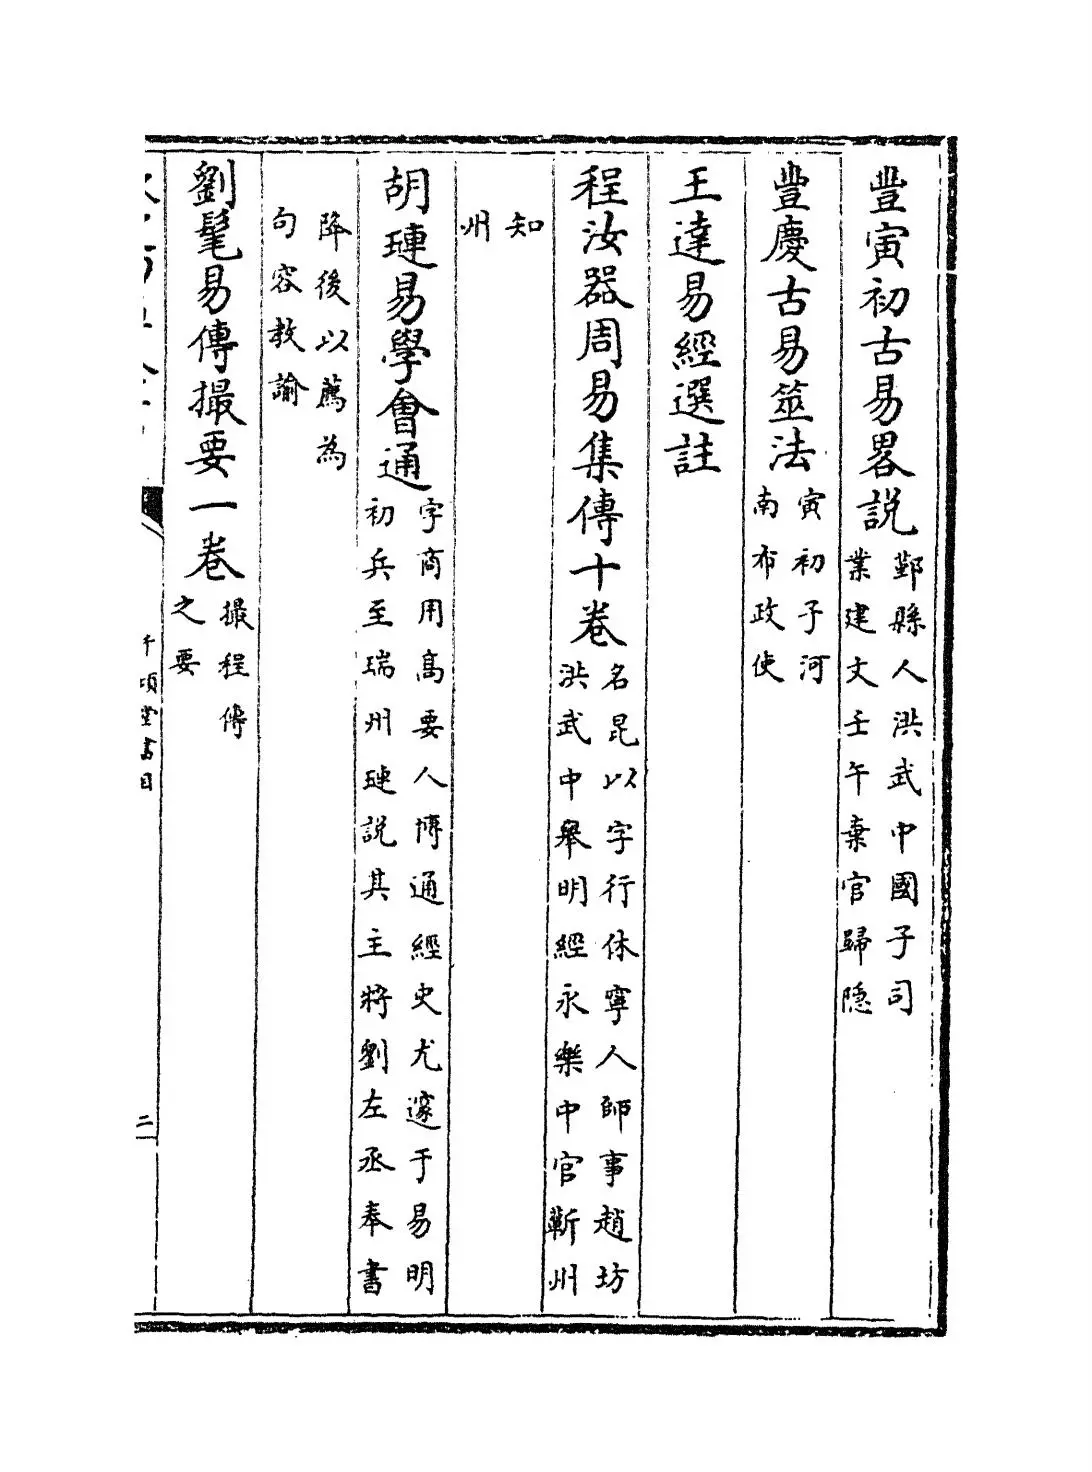 豐寅初古易畧説鄞縣人洪武中國子司業建文壬午棄官歸隠
豐慶古易筮法寅初子河南布政使
王達易經選註
程汝器周易集傳十卷名昆以字行休寧人師事趙坊洪武中舉明經永樂中官蘄州
知州
胡璉易學會通字商用高要人博通經史尤邃于易明初兵至瑞州璉説其主將劉左丞奉書
降後以薦為句容教諭
劉髦易傳撮要一卷撮程傳之要
千頃堂書目
二